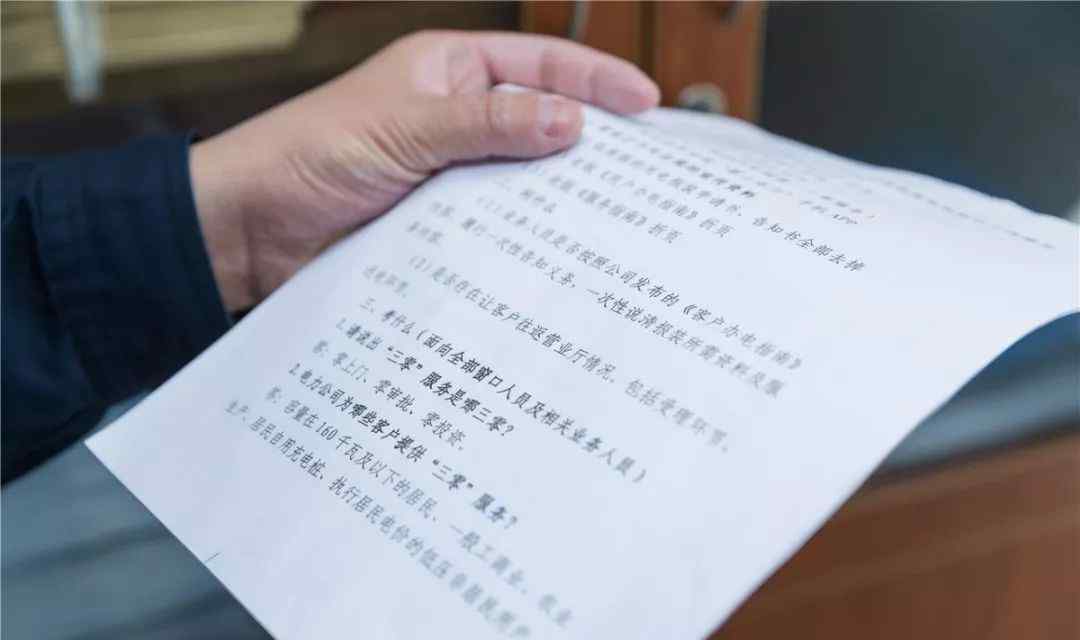 告知书全部去掉
《客户办电指南》折页
《服务指南》折页
二、问什么
(1)业务人员是否按照公司发布的《客户办电指南》
内容,履行一次性告知义务,一次性说清报装所需资料及服
务内容。
(2)是否存在让客户往返营业厅情况,包括受理环节、
送电环节。
三、考什么(面向全部窗口人员及相关业务人员)
1.请说出“三零”服务是哪三零?
答:零上门、零审批、零投资。
2.电力公司为哪些客户提供“三零”服务?
答:容量在160千瓦及以下的居民、一般工商业、农业
生产、居民自用充电桩、执行居民电价的低压非居民用户